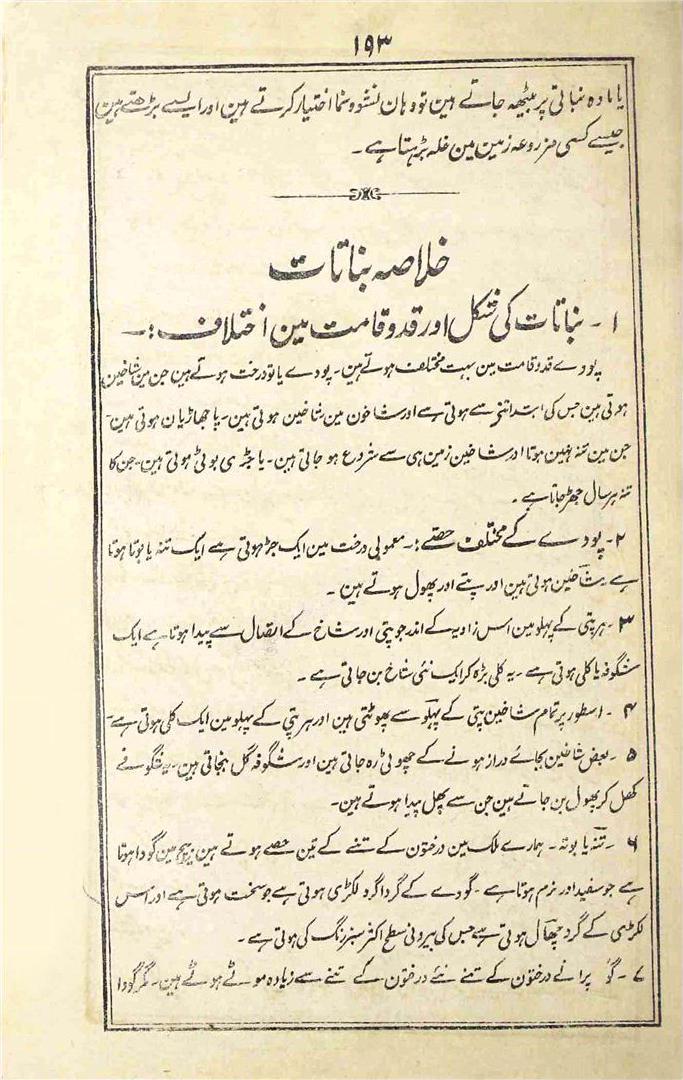 ۱۹۳
یا مادہ نباتی پر بیٹھہ جاتے ہین تو وہان نشو و نما اختیار کرتے ہین اور ایسے بڑھتے ہین
جیسے کسی مزروعہ زمین مین غلہ بڑہتا ہے ۔
خلاصہ نباتات
۱ - نباتات کی شکل اور قد و قامت مین اختلاف :۔
پودے قد و قامت مین بہت مختلف ہوتے ہین ۔ پودے یا تو درخت ہوتے ہین جن مین شاخین
ہوتی ہین جس کی ابتدا تنے سے ہوتی ہے اور شاخون مین شاخین ہوتی ہین ۔ یا جھاڑیان ہوتی ہین ۔
جن مین تنہ نہین ہوتا اور شاخین زمین ہی سے شروع ہو جاتی ہین ۔ یا جڑی بوٹی ہوتی ہین ۔ جن کا
تنہ ہر سال جھڑ جاتا ہے ۔
۲ - پودے کے مختلف حصے :۔ معمولی درخت مین ایک جڑ ہوتی ہے ایک تنہ یا بوٹا ہوتا
ہے شاخین ہوتی ہین اور پتے اور پھول ہوتے ہین ۔
۳ - ہر پتی کے پہلو مین اس زاویہ کے اندر جو پتی اور شاخ کے اتصال سے پیدا ہوتا ہے ایک
شگوفہ یا کلی ہوتی ہے ۔ یہ کلی بڑہ کر ایک نئی شاخ بن جاتی ہے ۔
۴ - اسطور پر تمام شاخین پتی کے پہلو سے پھوٹتی ہین اور ہر پتی کے پہلو مین ایک کلی ہوتی ہے ۔
۵ - بعض شاخین بجائے دراز ہونے کے چھوٹی رہ جاتی ہین اور شگوفہ گل بنجاتی ہین ۔ یہ شگوفے
کھل کر پھول بن جاتے ہین جن سے پھل پیدا ہوتے ہین ۔
۶ - تنہ یا بوٹہ ۔ ہمارے ملک مین درختون کے تنے کے تین حصے ہوتے ہین بیچ مین گودا ہوتا
ہے جو سفید اور نرم ہوتا ہے ۔ گودے کے گردا گرد لکڑی ہوتی ہے جو سخت ہوتی ہے اور اس
لکڑی کے گرد چھال ہوتی ہے جس کی بیرونی سطح اکثر سبز رنگ کی ہوتی ہے ۔
۷ - گو پرانے درختون کے تنے نئے درختون کے تنے سے زیادہ موٹے ہوتے ہین ۔ مگر گودا